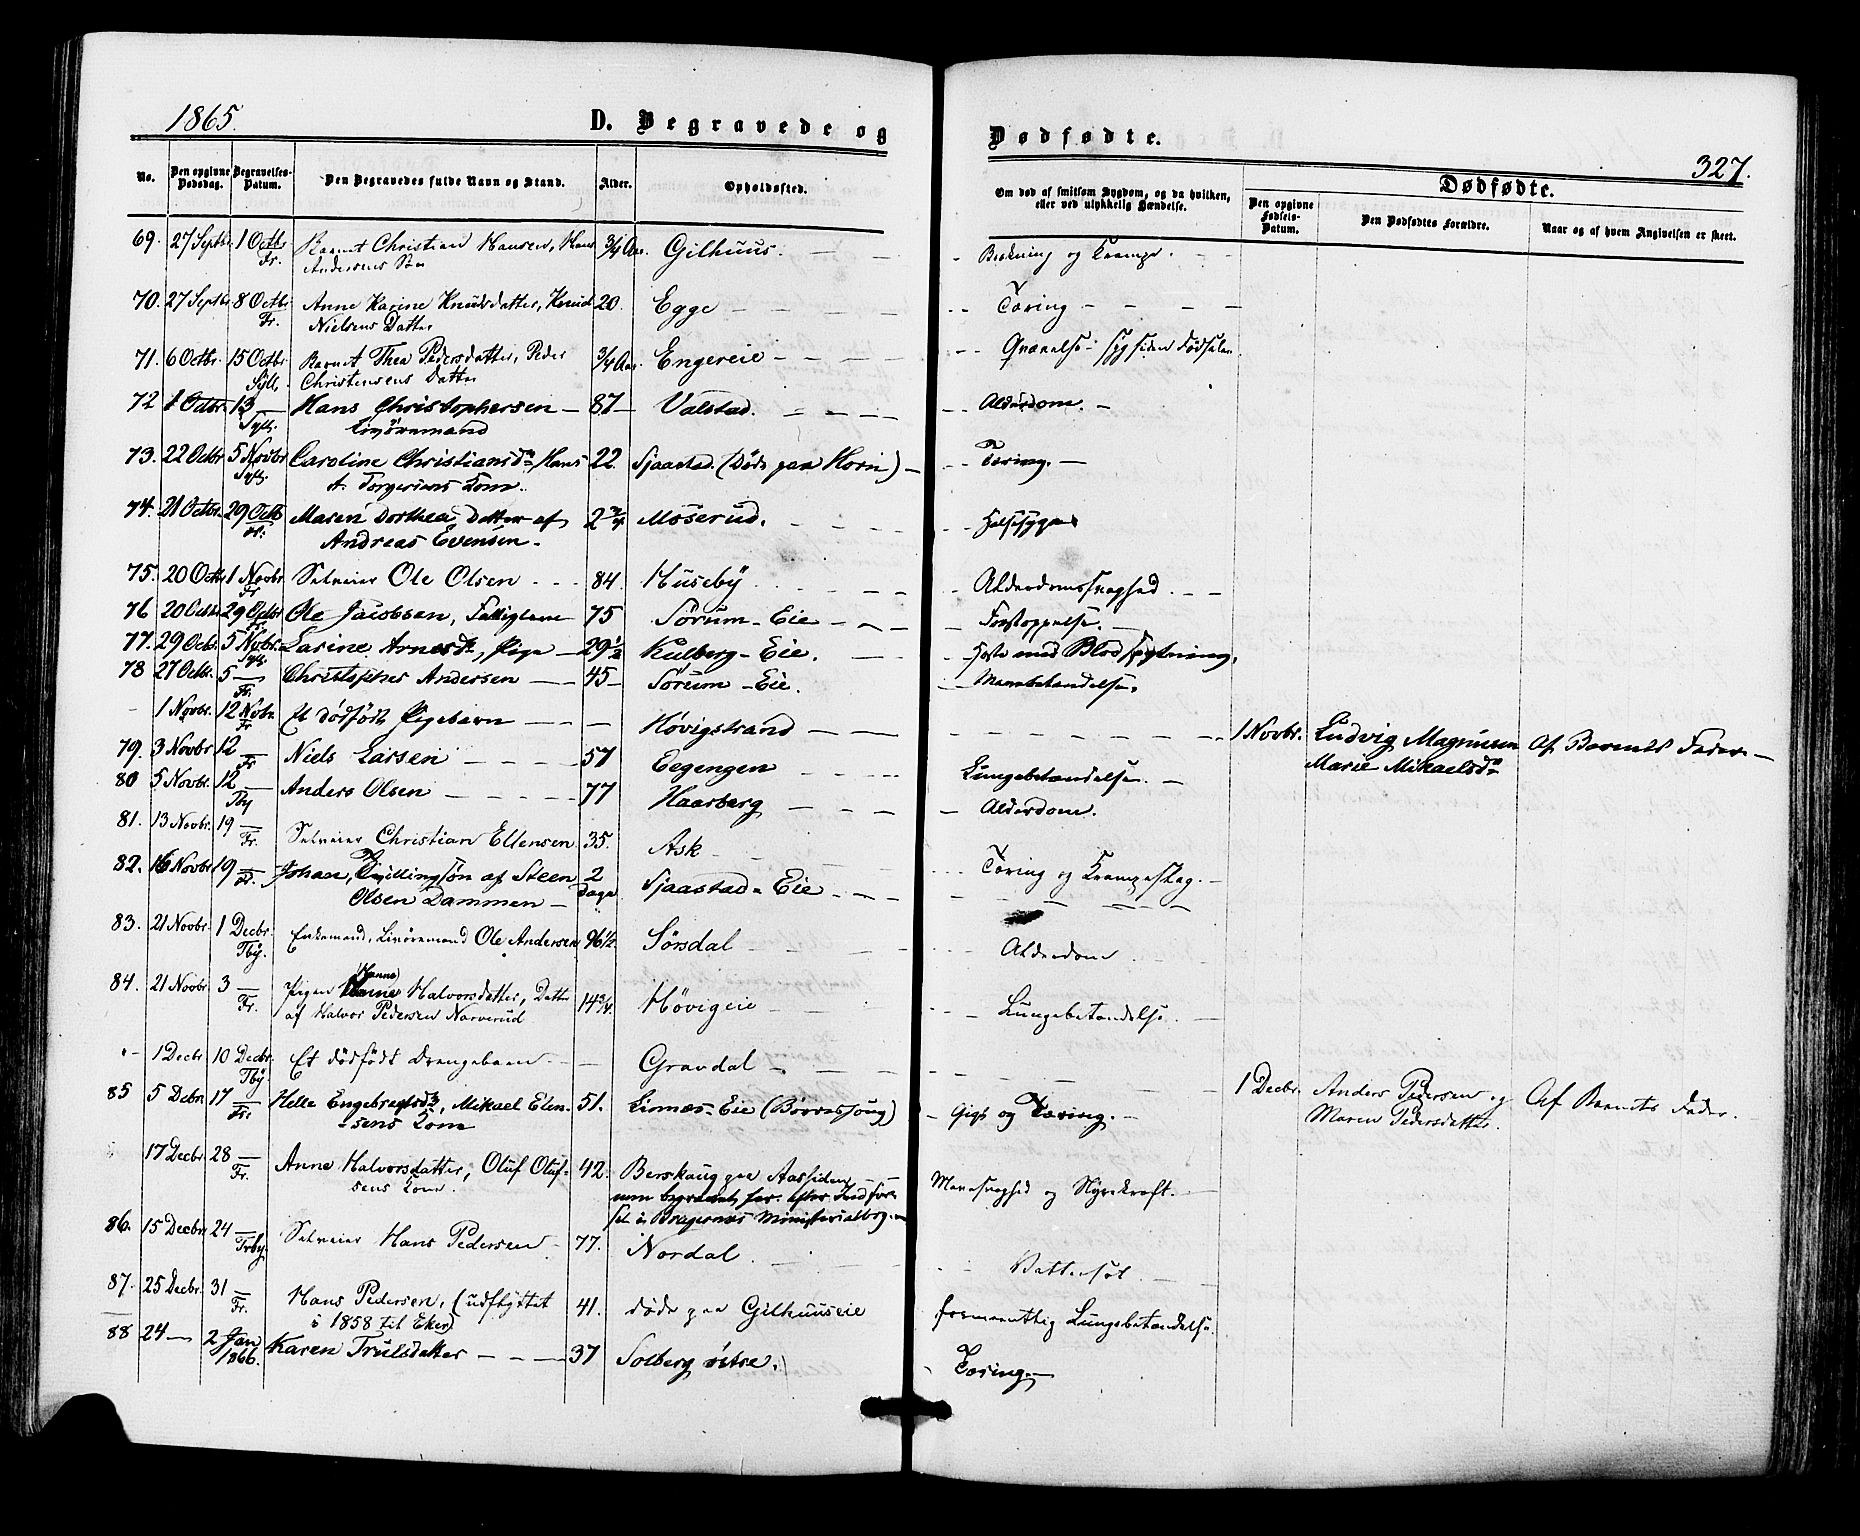 1865.
D. Begravede og
Dødfødte.
327.
No.
Den opgivne Dødsdag.
Begravelses-Datum.
Den Begravedes fulde Navn og Stand.
Alder.
Opholdssted.
Om død af smitsom Sygdom, og da hvilken, eller ved ulykkelig Hændelse.
Dødfødte.
Den opgivne Fødsels-Datum.
Den Dødfødtes Forældre.
Naar og af hvem Angivelsen er skeet.
69. 27 Septbr 1 Octbr Barnet Christian Hansen, Hans ¾ Aar. Gilhuus. og Krampe.
Fr. Andersens Søn
70. 27 Septbr 8 Octbr Anne Karine Knudsdatter, Knud 20. Egge Tæring
Fr. Nielsens Datter
71. 6 Octbr. 15 Octbr Barnet Thea Pedersdatter, Peder ¾ Aar. Engereie Qværkelse syg siden Fødselen
Syll. Christensens Datter
72 1 Octbr. 13 Hans Christophersen 87 Valstad. Alderdom.
Syll. Livøremand
73. 22 Octbr 5 Novbr Caroline Christiansdr Hans 22. Sjaastad. (Døde paa Horn) Tæring.
Syll. A. Torgersens Kone.
74. 21 Octbr. 29 Octb Maren Dorthea, Datter af 2 Møserud. Halssyge
Fr. Andreas Evensen
75. 20 Octb 1 Novbr Selveier Ole Olsen 84. Huseby Alderdomssvaghed.
Fr
76 20 Octbr 29 Octbr Ole Jacobsen, Fattiglem 75 Sörum-Eie Forstoppelse.
Fr.
77. 29 Octb. 5 Novbr. Larine Arnesdr, Pige 29½ Kulberg-Eie. Hoste med Blodspytning.
Sylh.
78 27 Octbr. 5 Christopher Andersen 45 Sörum-Eie. Mavebetændelse.
Fr.
1 Novbr. 12 Novbr. Et dødfødt Pigebarn Høvigstrand 1 Novbr. Ludvig Magnusen Af Barnets Fader
Fr Marie Mikaelsdr
79. 3 Novbr 12 Niels Larsen 57 Eegengen Lungebetændelse.
Fr
80 5 Novbr. 12 Anders Olsen 77 Haarberg Alderdom.
Tby
81. 13 Novbr. 19 Selveier Christian Ellensen 35. Ask Tæring og Krampeslag.
Fr.
82. 16 Novbr 19 Johan, Tvillingsøn af Steen 2 Sjaastad-Eie
Fr. Olsen Dammen Dage
83. 21 Novbr. 1 Decbr. Enkemand, Livøremand Ole Andersen 96½ Sörsdal Alderdom
Tby.
84. 21 Novbr 3 Pigen Hanne Halvorsdatter, Datter 14¾ Høvigeie Lungebetændelse.
Fr. af Halvor Pedersen Narverud
1 Decbr 10 Decbr. Et dødfødt Drengebarn Gravdal 1 Decbr. Anders Pedersen og Af Barnets Fader.
Tby. Maren Pedersdatter.
85 5 Debr 17 Helle Engebregtsdr, Mikael Elen- 51. Linnæs-Eie Gigt og Tæring.
Fr. sens Kone
17 Decbr. 28 Anne Halvorsdatter, Oluf Oluf- 42. Berskaug paa Aassiden Mavesvaghed og Nyrekræft.
Fr. sens Kone. men begravet her. efter Indfør-
sel i Bragernæs Ministerialbog.
86. 15 Decbr 24 Selveier Hans Pedersen 77. Nordal Vattersot.
Trby.
87. 25 Decbr. 31 Hans Pedersen, (udflyttet 41. døde paa Gilhuuseie formeentlig Lungebetændelse.
Fr. i 1858 til Eker)
88 24 2 Jan Karen Trulsdatter 37 Solberg östre. Tæring.
1866.